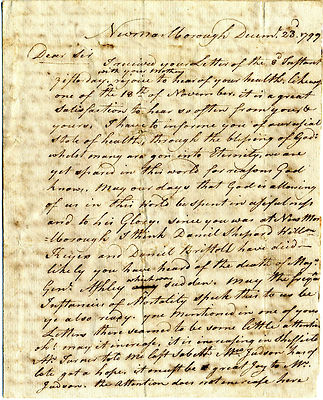 New Marlborough Decemr. 23d. 1799
Dear Sir
I received your Letter of the 8th Instant
with your Mothers
yesterday, rejoice to hear of your health, likewise
one of the 18th of November. it is a great
Satisfaction to hear so often from you &
yours, I have to inform you of our usual
State of health, through the blessing of God
whilst many are gon into Eternity, we are
yet spared in this world for reasons God
knows, May our days that God is allowing
of us in this World be spent in usefulness
and to his Glory. Since you was at New Marl-
borough I think Daniel Shepard
and Daniel have died
likely you have heard of the death of Majr.
Genl. Ashley which was sudden. May the frequent
Instances of Mortality speak thus to us be
ye also ready. you mentioned in one of your
Letters there seemed to be some little attention
oh! may it increase, it is increasing in Sheffield
Mr. Turner told me last Sabath. Mrs. Judson has of
late got a hope. it must be great Joy to Mr.
Judson. the attention does not increase here